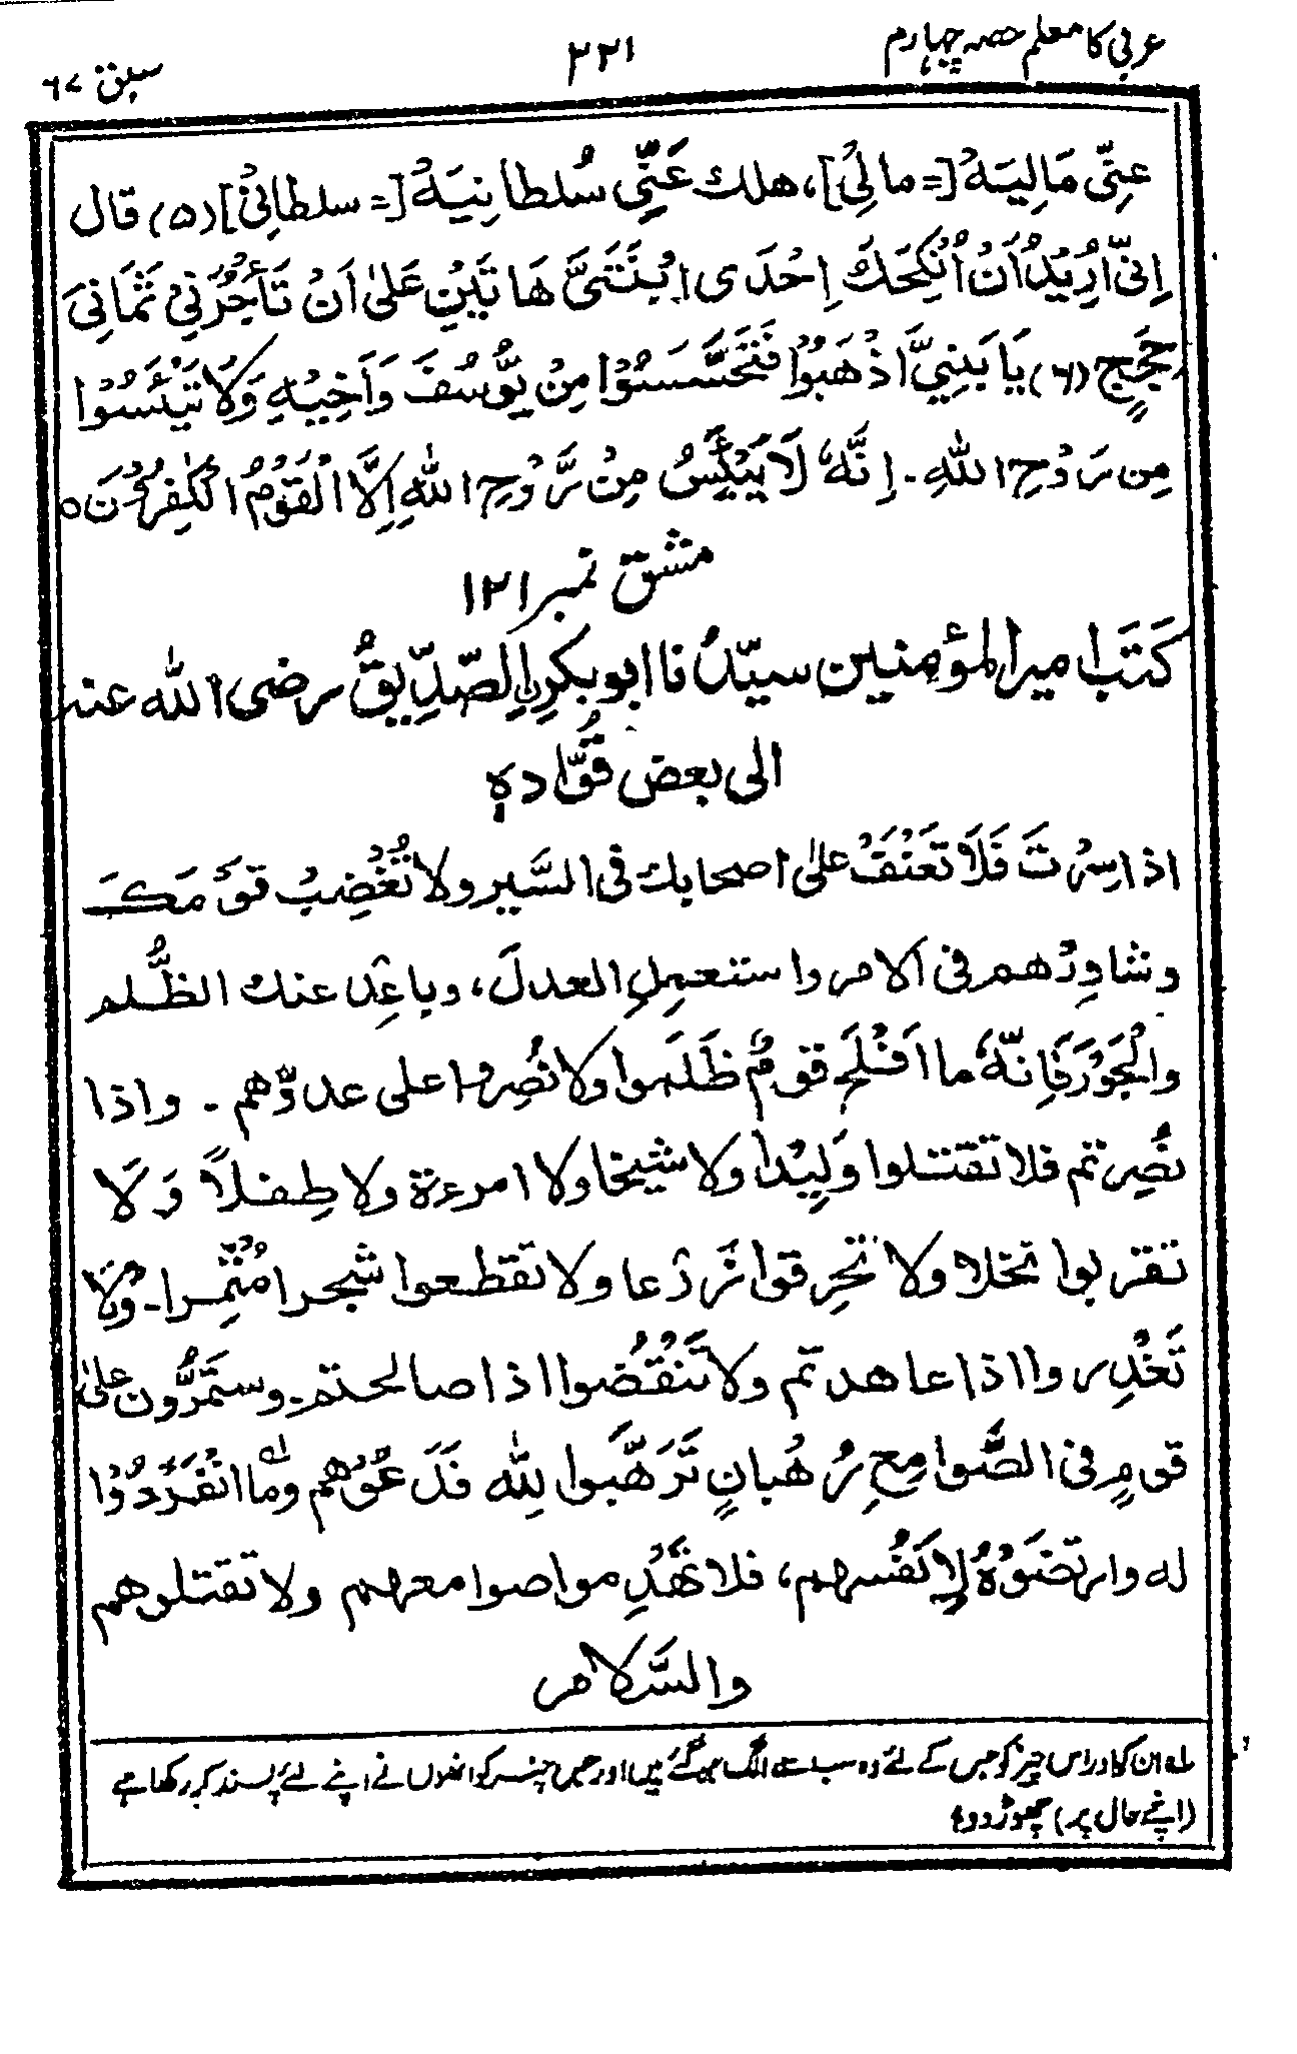 عربی کا معلم حصہ چہارم
۲۲۱
سبق ۶۷
عنِّی مَالِیَهْ [= مالِیْ]، هلك عَنِّی سُلطانِیَهْ [= سلطانِیْ] (۵) قال
اِنِّیْ اُرِیْدُ اَنْ اُنْکِحَكَ اِحْدَی ابْنَتَیَّ هَاتَیْنِ عَلٰی اَنْ تَأْجُرَنِیْ ثَمَانِیَ
حِجَجٍ (۶) یَا بَنِیَّ اذْهَبُوْا فَتَحَسَّسُوْا مِنْ یُّوْسُفَ وَاَخِیْهِ وَلَا تَیْئَسُوْا
مِن رَوْحِ اللّٰهِ۔ اِنَّهٗ لَا یَیْئَسُ مِنْ رَّوْحِ اللّٰهِ اِلَّا الْقَوْمُ الْکٰفِرُوْنَ ۝
مشق نمبر ۱۲۱
کَتَبَ امیرالمؤمنین سیّدُنا ابو بکرِ ﹰالصّدِّیقُ رضی اللّٰه عنه
الی بعض قُوَّادهٖ
اذا سِرْتَ فَلَا تَعْنَفْ علیٰ اصحابك فی السَّیر ولا تُغْضِبْ قومَكَ
وشاوِرْهم فی الامر واستعمِلِ العدلَ، وباعِد عنك الظُّلم
والْجَوْرَ فَاِنَّهٗ ما اَفْلَحَ قومٌ ظَلَموا ولا نُصِروا علی عدوّهم ۔ واذا
نُصِرتم فلا تقتلوا وَلِیْدًا ولا شیخا ولا امرءة ولا طِفلاً وَلَا
تقربوا نخلا ولا تحرِقوا زَرْعا ولا تقطعوا شجرا مُثْمِرا۔ وَلَا
تَغْدِروا اذا عاهدتم ولا تَنْقُضوا اذا صالحتم۔ وستمَرُّون علیٰ
قومٍ فی الصَّوامِحِ رُهْبانٍ تَرَهَّبوا لِلّٰه فَدَعُوْهم وما انْفَرَدُوْا
له وارتضَوْهُ لِاَنْفُسهم، فلا تَهْدِموا صوامعهم ولا تقتلوهم
والسَّلام
لہ ان کو اور اس چیز کو جس کے لئے وہ سب سے الگ ہو گئے ہیں اور جس چیز کو انھوں نے اپنے لئے پسند کر رکھا ہے
(اپنے حال پر) چھوڑ دو۔